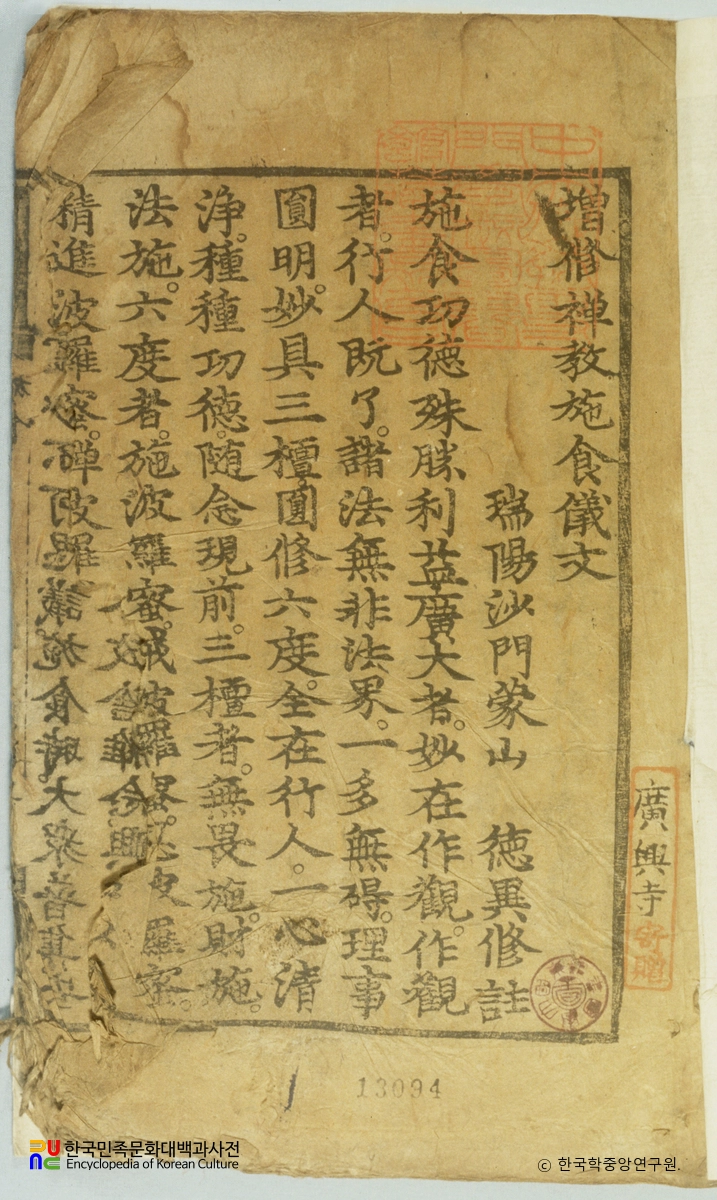 增修禅教施食儀文
瑞陽沙門蒙山 德異修註
施食功德殊勝利益廣大者。妙在作觀。作觀
者。行人既了。諸法無非法界。一多無碍。理事
圓明。妙具三檀圓修六度。全在行人。一心清
淨。種種功德。随念現前。三檀者。無畏施。財施。
法施。六度者。施波羅蜜。戒波羅蜜。波羅蜜。
精進波羅蜜。禅波羅 施食時。大衆普集
廣興寺
寄贈
13094
한국민족문화대백과사전
Encyclopedia of Korean Culture
© 한국학중앙연구원.